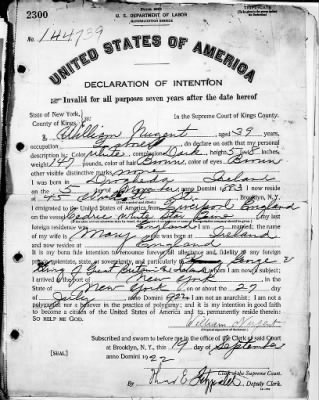 2300
U. S. DEPARTMENT OF LABOR
No. 144739
UNITED STATES OF AMERICA
DECLARATION OF INTENTION
Invalid for all purposes seven years after the date hereof
State of New York,
County of Kings,
In the Supreme Court of Kings County.
I, William Nugent, aged 39 years,
occupation, do declare on oath that my personal
description is: Color White, complexion Dark, height 5 feet 8 inches,
weight 147 pounds, color of hair Brown, color of eyes Brown
other visible distinctive marks none
I was born in Drogheda Ireland
on the 5 day of November, anno Domini 1883; I now reside
at 45 St., Brooklyn, N.Y.
I emigrated to the United States of America from Liverpool England
on the vessel Cedric White Star Line; my last
foreign residence was England; I am married; the name
of my wife is Mary; she was born at Ireland
and now resides at England
It is my bona fide intention to renounce forever all allegiance and fidelity to any foreign
prince, potentate, state, or sovereignty, and particularly to George V
King of Great Britain & Ireland, of whom I am now a subject;
I arrived at the port of New York, in the
State of New York, on or about the 27 day
of July, anno Domini 1922; I am not an anarchist; I am not a
polygamist nor a believer in the practice of polygamy; and it is my intention in good faith
to become a citizen of the United States of America and to permanently reside therein:
SO HELP ME GOD.
William Nugent
Subscribed and sworn to before me in the office of the Clerk of said Court
at Brooklyn, N.Y., this 19 day of September
[SEAL]
anno Domini 1922
Clerk of the Supreme Court.
By, Deputy Clerk.